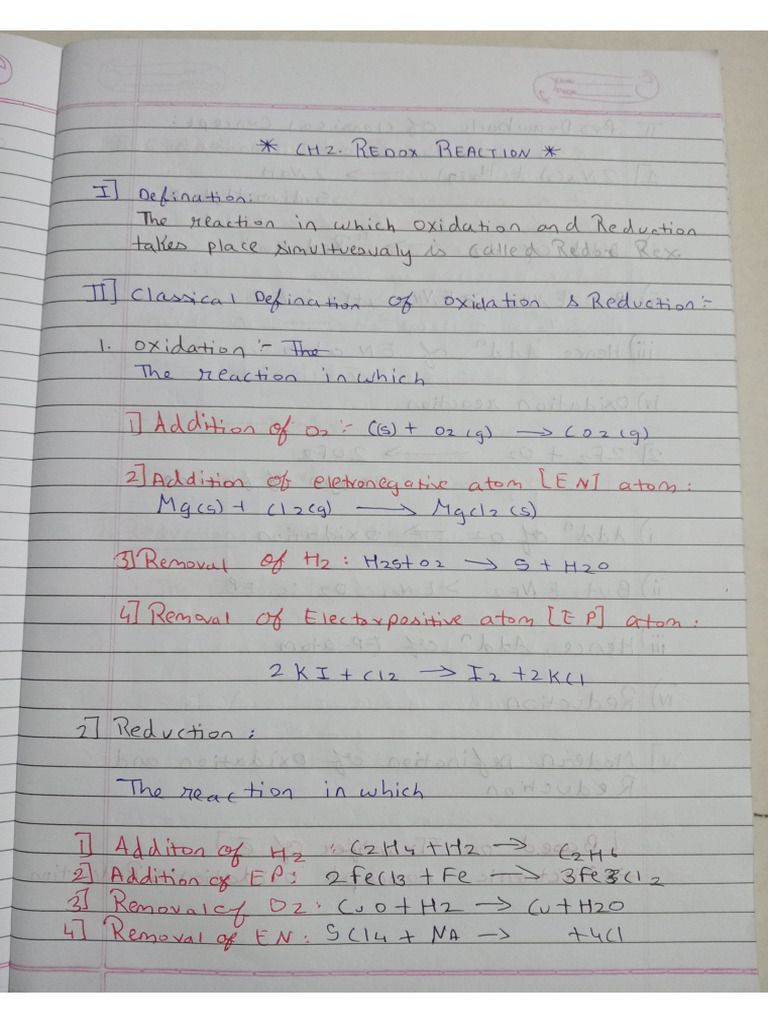 * CH2. REDOX REACTION *
I] Defination:
The reaction in which oxidation and Reduction
takes place simultueovaly is called Redox Rex.
II] Classical Defination of oxidation & Reduction:-
1. oxidation :- The
The reaction in which
1] Addition of O2 :- C(s) + O2(g) → CO2(g)
2] Addition of eletronegative atom [EN] atom:
Mg(s) + Cl2(g) → MgCl2(s)
3] Removal of H2 : H2S+O2 → S + H2O
4] Removal of Electorpositive atom [EP] atom:
2KI + Cl2 → I2 + 2KCl
2] Reduction :
The reaction in which
1] Additon of H2 : C2H4 + H2 → C2H6
2] Addition of EP: 2FeCl3 + Fe → 3FeCl2
3] Removal of O2 : CuO + H2 → Cu + H2O
4] Removal of EN : SCl4 + NA → +4Cl